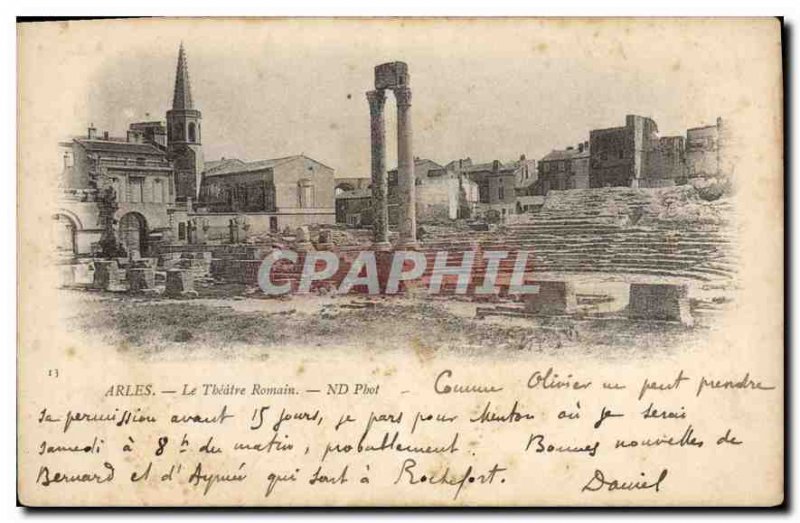 CPAPHIL
13
ARLES. — Le Théâtre Romain. — ND Phot
Comme Olivier ne peut prendre
sa permission avant 15 jours, je pars pour Menton où je serai
samedi à 8 h du matin, probablement. Bonnes nouvelles de
Bernard et d'Aymé qui sont à Rochefort. Daniel